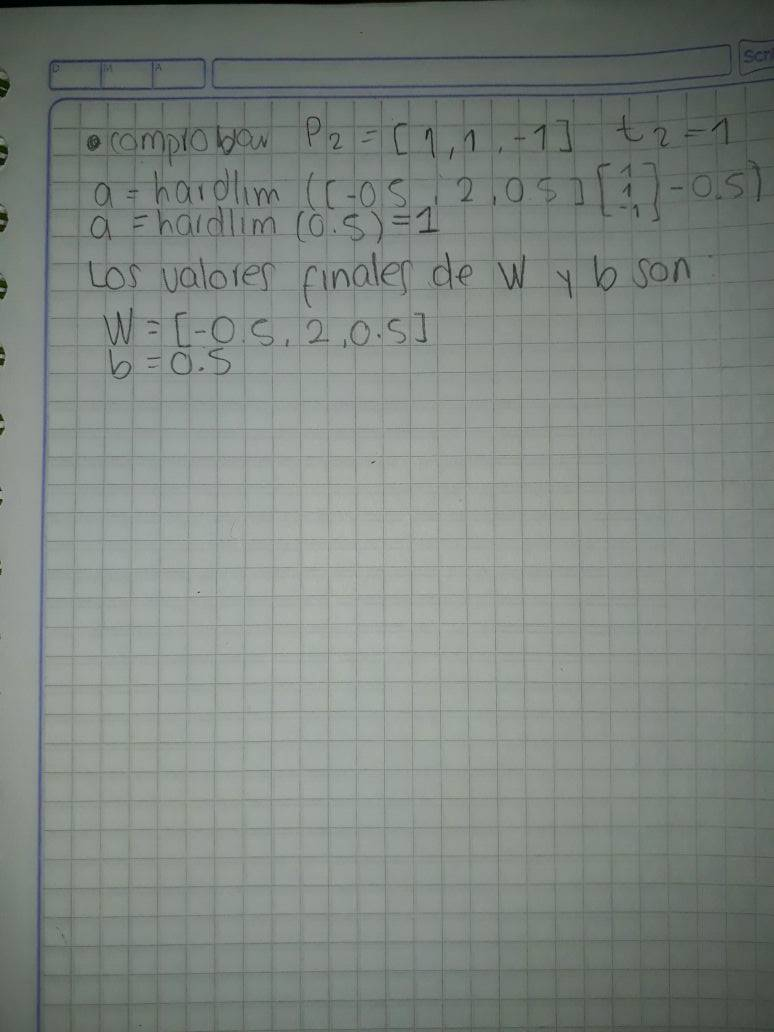 D M A
Scri
• comprobar P2 = [1, 1, -1] t2 = 1
a = hardlim ([-0.5, 2, 0.5] [1 1 -1] - 0.5)
a = hardlim (0.5) = 1
Los valores finales de W y b son:
W = [-0.5, 2, 0.5]
b = 0.5